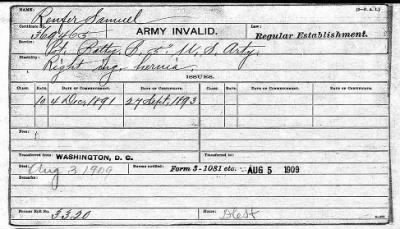 NAME: Renfer Samuel (3-F. & L.)
Certificate No. ARMY INVALID. Law:
369465 Regular Establishment.
Service: Pvt. Battery B. 5" U. S. Arty.
Disability: Right ing. hernia.
ISSUES.
CLASS. RATE. DATE OF COMMENCEMENT. DATE OF CERTIFICATE. CLASS. RATE. DATE OF COMMENCEMENT. DATE OF CERTIFICATE.
10 4 Dec. 1891 27 Sept. 1893
From:
Transferred from: WASHINGTON, D. C. Transferred to:
Died: Aug 3, 1909 Bureau notified: Form 3-1081 etc. AUG 5 1909
Remarks:
Former Roll No. 3320 Home: